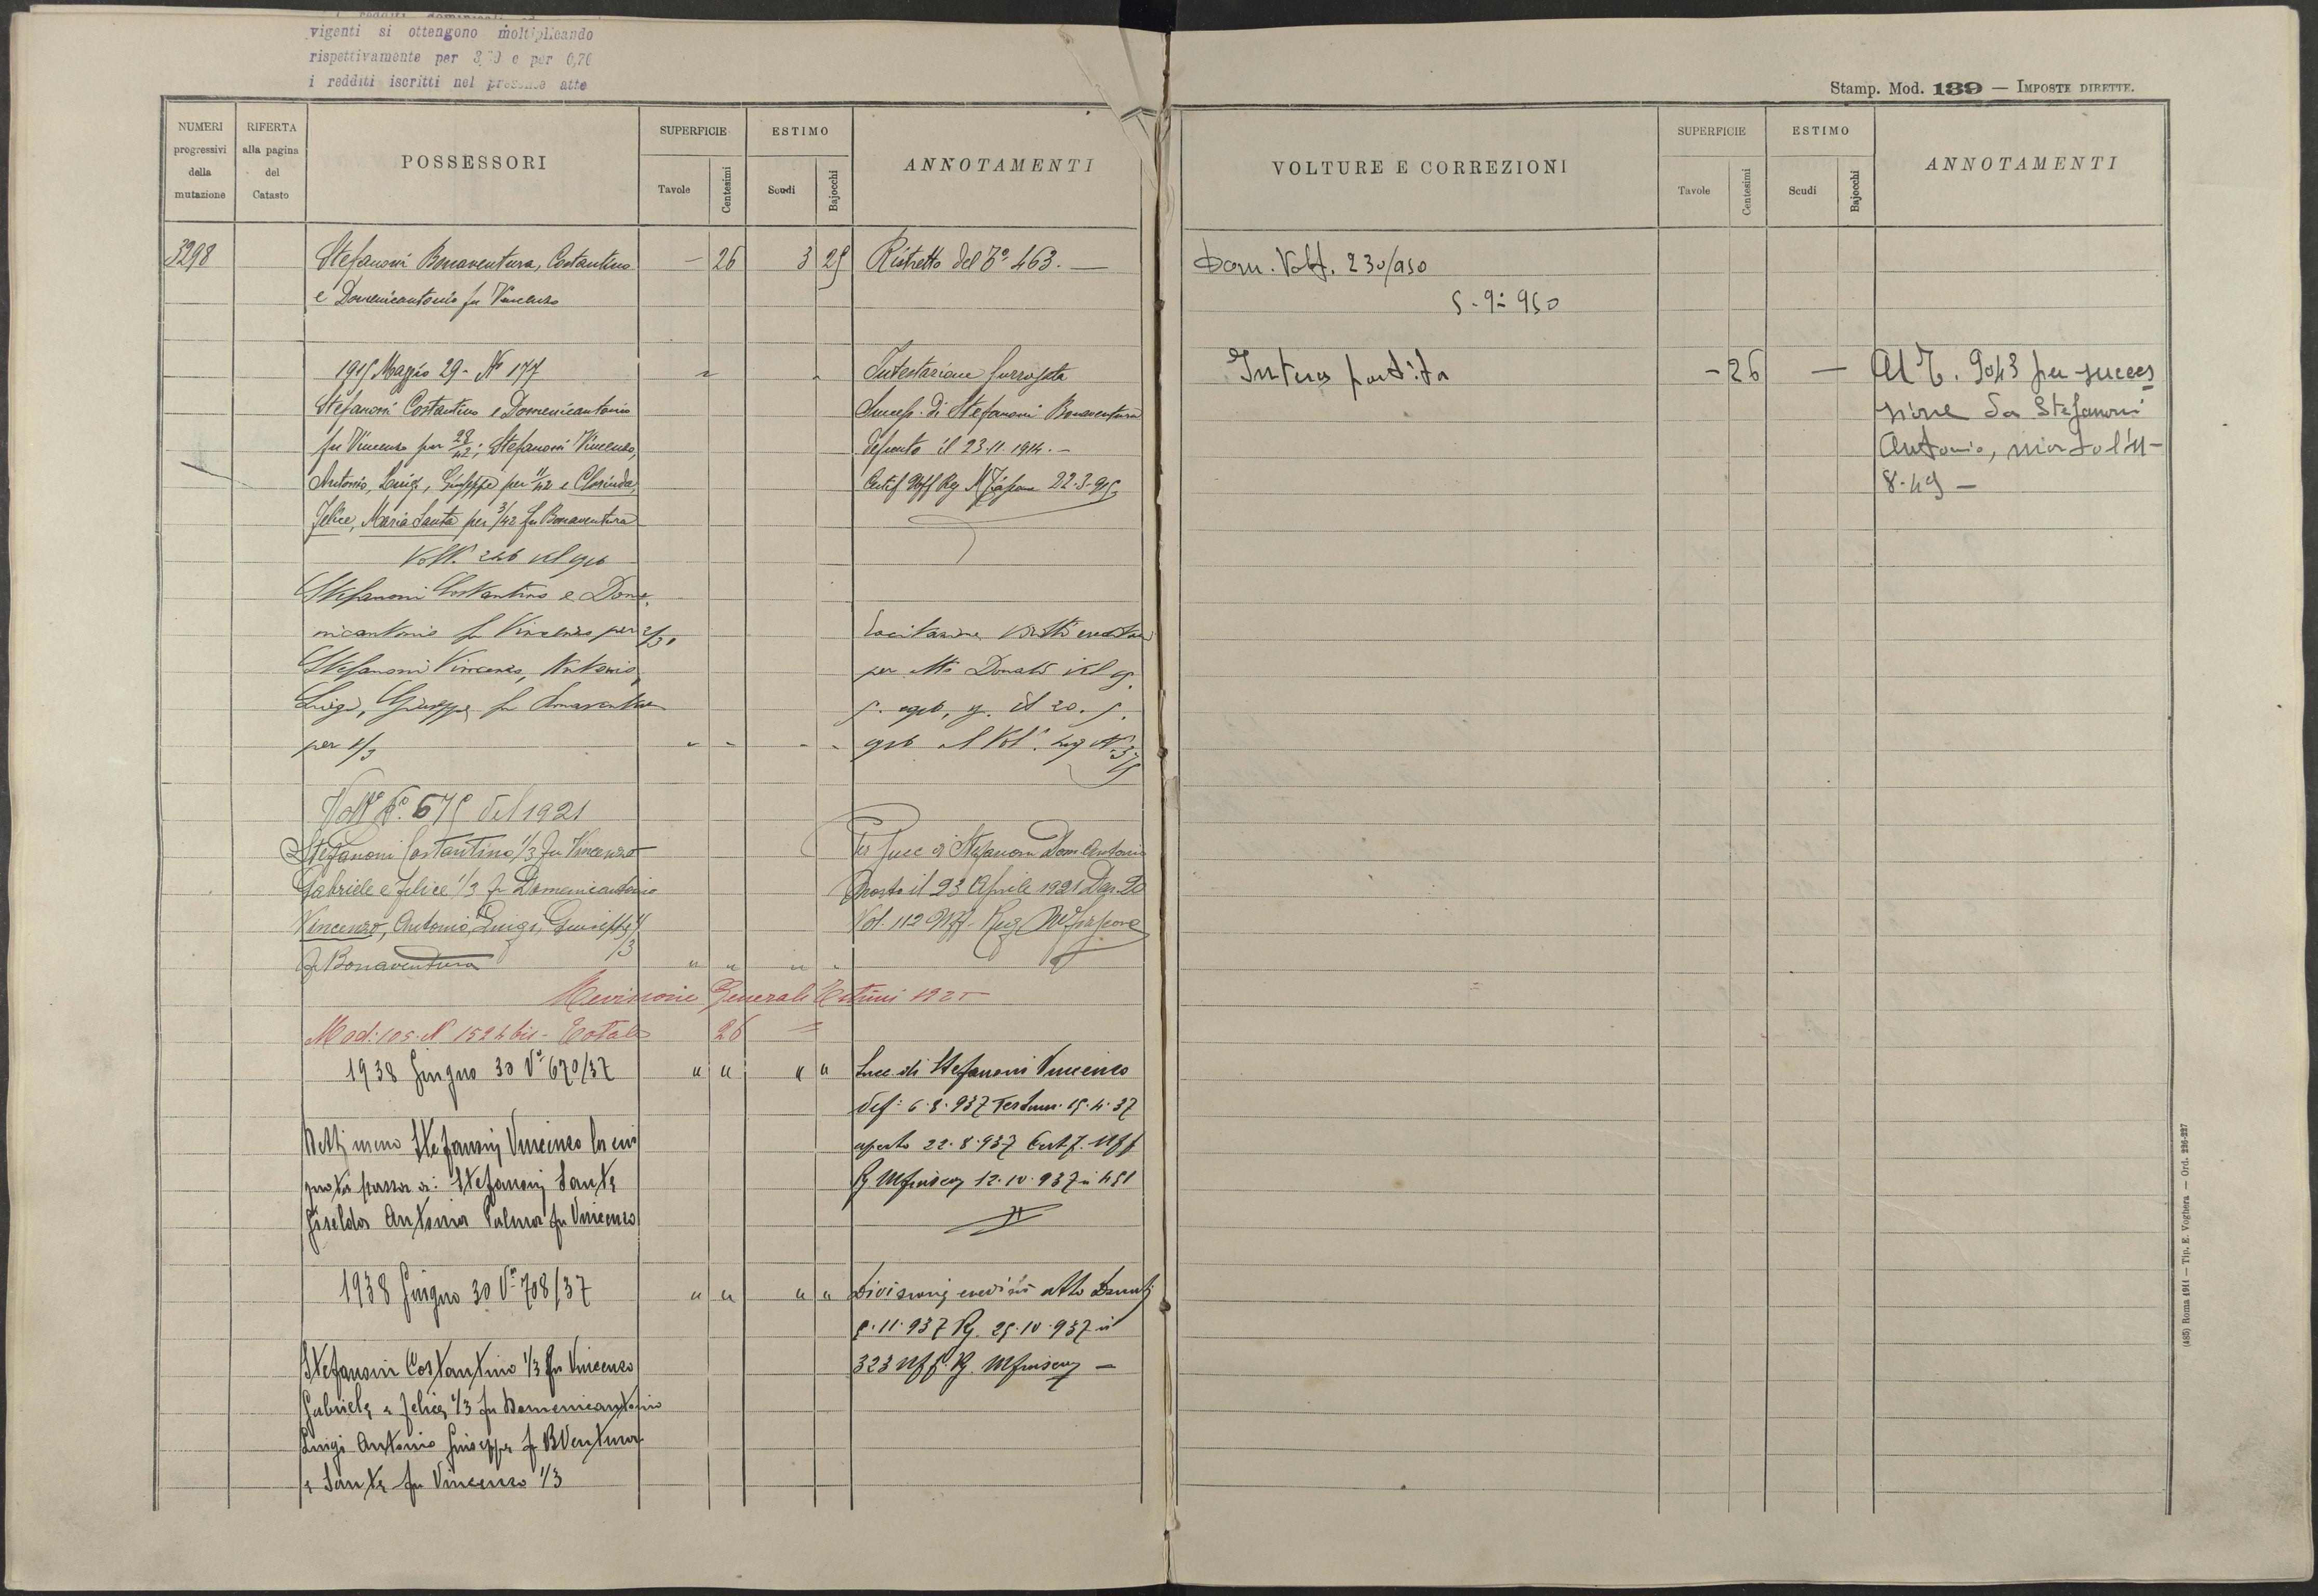 vigenti si ottengono moltiplicando
rispettivamente per 3,70 e per 0,70
i redditi iscritti nel presente atto
Stamp. Mod. 139 — IMPOSTE DIRETTE.
NUMERI progressivi della mutazione
RIFERTA alla pagina del Catasto
POSSESSORI
SUPERFICIE
Tavole
Centesimi
ESTIMO
Scudi
Bajocchi
ANNOTAMENTI
VOLTURE E CORREZIONI
SUPERFICIE
Tavole
Centesimi
ESTIMO
Scudi
Bajocchi
ANNOTAMENTI
3298 Stefanoni Bonaventura, Costantino — 26 3 25 Ristretto del 463. —
e Domenicantonio fu Vincenzo
1915 Maggio 29 - Nº 177 Intestazione surrogata
Stefanoni Costantino e Domenicantonio Success. di Stefanoni Bonaventura
fu Vincenzo per 28/42; Stefanoni Vincenzo, defunto il 23-11-1914. —
Antonio, Luigi, Giuseppe per 11/42 e Clorinda, Certif Uff Reg 22-3-915
Felice, Maria Santa per 3/42 fu Bonaventura
Volt. 246 del 916
Stefanoni Costantino e Dome-
nicantonio fu Vincenzo per 2/3,
Stefanoni Vincenzo, Antonio, per Atto Donati del
Luigi, Giuseppe fu Bonaventura il 20.
per 1/3
Voltª Nº. 675 del 1921
Stefanoni Costantino 1/3 fu Vincenzo Per Succ di Stefanoni Dom. Antonio
Gabriele e Felice 1/3 fu Domenicantonio morto il 23 Aprile 1921
Vincenzo, Antonio, Luigi, Giuseppe 1/3 Vol. 112 Uff. Reg
fu Bonaventura " " " "
Revisione Generale Estimi 1925
Mod: 105. N 1524 bis - Totale 26 =
1938 Giugno 30 Vª 670/37 " " " " Succ. di Stefanoni Vincenzo
def: 6.8.937 Testam. 15.4.37
Stefanoni Vincenzo la cui aperto 22.8.937 Certif. Uff
quota passa a: Stefanoni Sante 12.10.937 n 451
Giselda Antonia Palma fu Vincenzo
1938 Giugno 30 Vª 708/37 " " " " Divisione atto Donati
5.11.937 Rg. 25.10.937 n
Stefanoni Costantino 1/3 fu Vincenzo 323 Uff Rg.
Gabriele e Felice 1/3 fu Domenicantonio
Luigi Antonio Giuseppe fu BVentura
e Sante fu Vincenzo 1/3
Dom. Volt. 230/950
5-9-950
Intera partita — 26 — Al T. 9043 per succes
sione da Stefanoni
Antonio, morto l'11-
8-49 —
(485) Roma 1911 — Tip. E. Voghera — Ord. 226-227